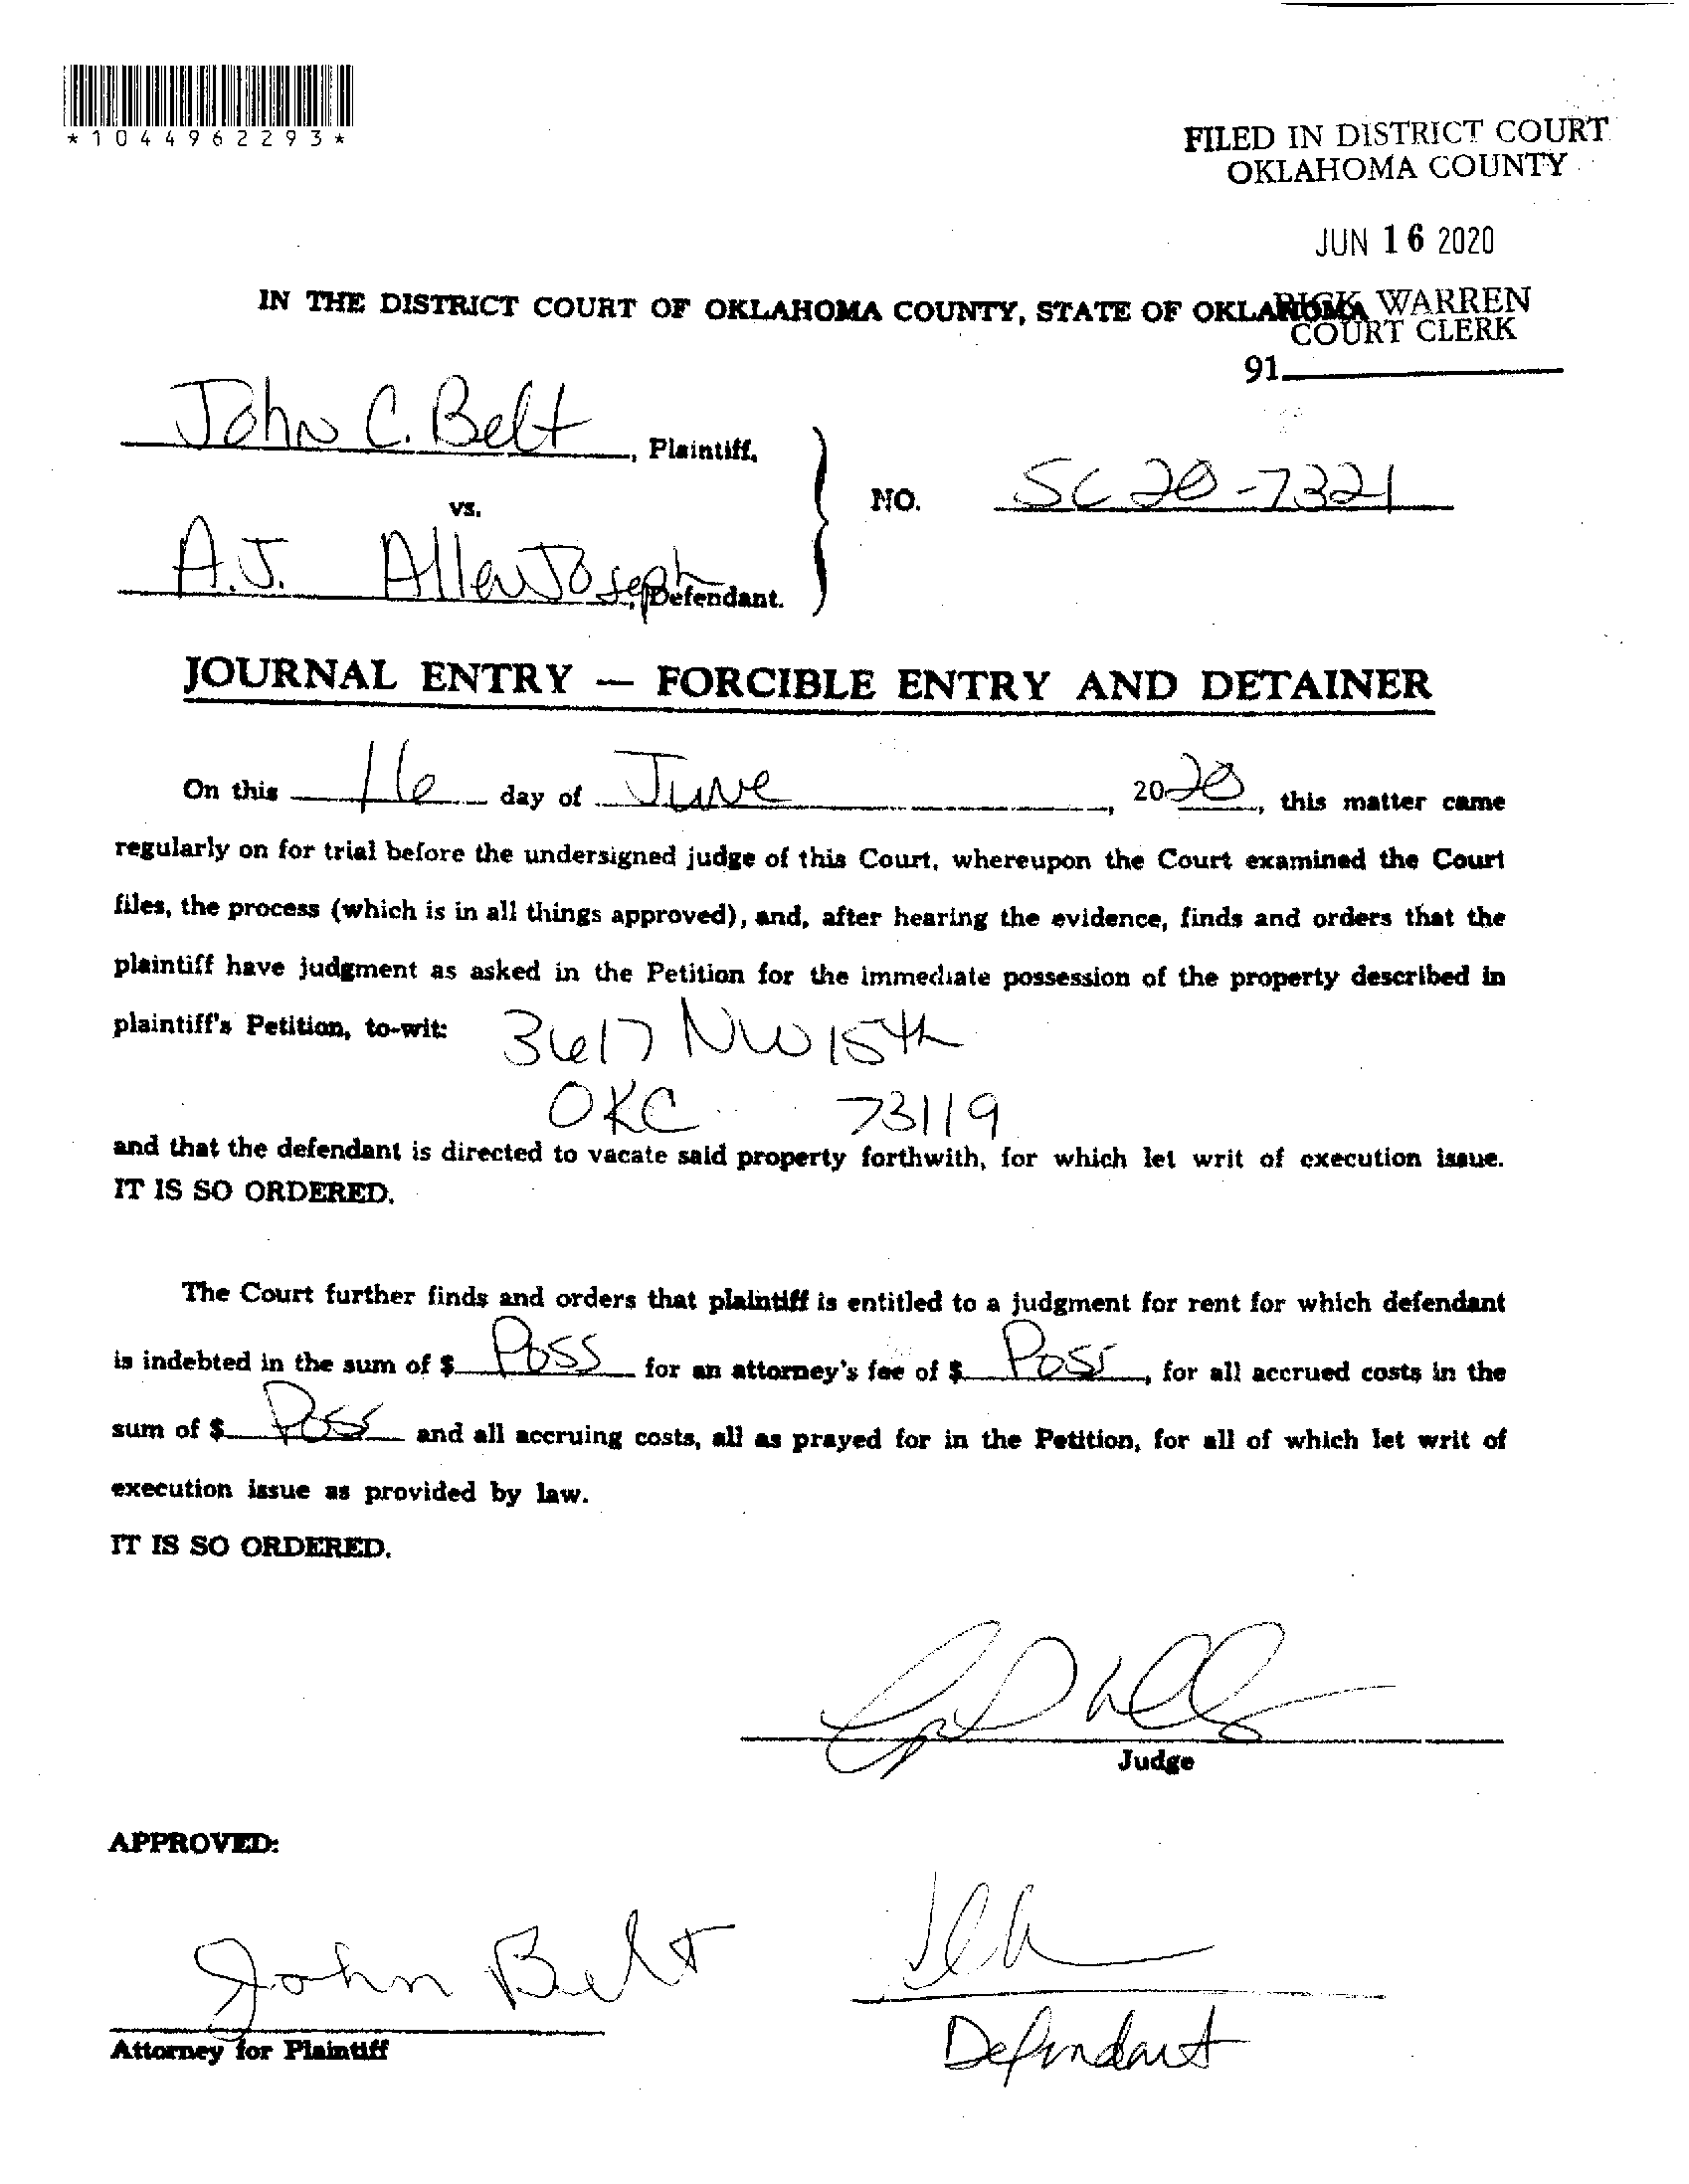 *1044962293*
FILED IN DISTRICT COURT
OKLAHOMA COUNTY
JUN 16 2020
RICK WARREN
COURT CLERK
91
IN THE DISTRICT COURT OF OKLAHOMA COUNTY, STATE OF OKLAHOMA
John C. Belt, Plaintiff,
vs.
NO. SC 20-7321
A.J. Allen Joseph, Defendant.
JOURNAL ENTRY — FORCIBLE ENTRY AND DETAINER
On this 16 day of June, 2020, this matter came
regularly on for trial before the undersigned judge of this Court, whereupon the Court examined the Court
files, the process (which is in all things approved), and, after hearing the evidence, finds and orders that the
plaintiff have judgment as asked in the Petition for the immediate possession of the property described in
plaintiff's Petition, to-wit: 3617 NW 15th
OKC 73119
and that the defendant is directed to vacate said property forthwith, for which let writ of execution issue.
IT IS SO ORDERED.
The Court further finds and orders that plaintiff is entitled to a judgment for rent for which defendant
is indebted in the sum of $ Poss for an attorney's fee of $ Poss, for all accrued costs in the
sum of $ Poss and all accruing costs, all as prayed for in the Petition, for all of which let writ of
execution issue as provided by law.
IT IS SO ORDERED.
Judge
APPROVED:
John Belt
Attorney for Plaintiff
Defendant